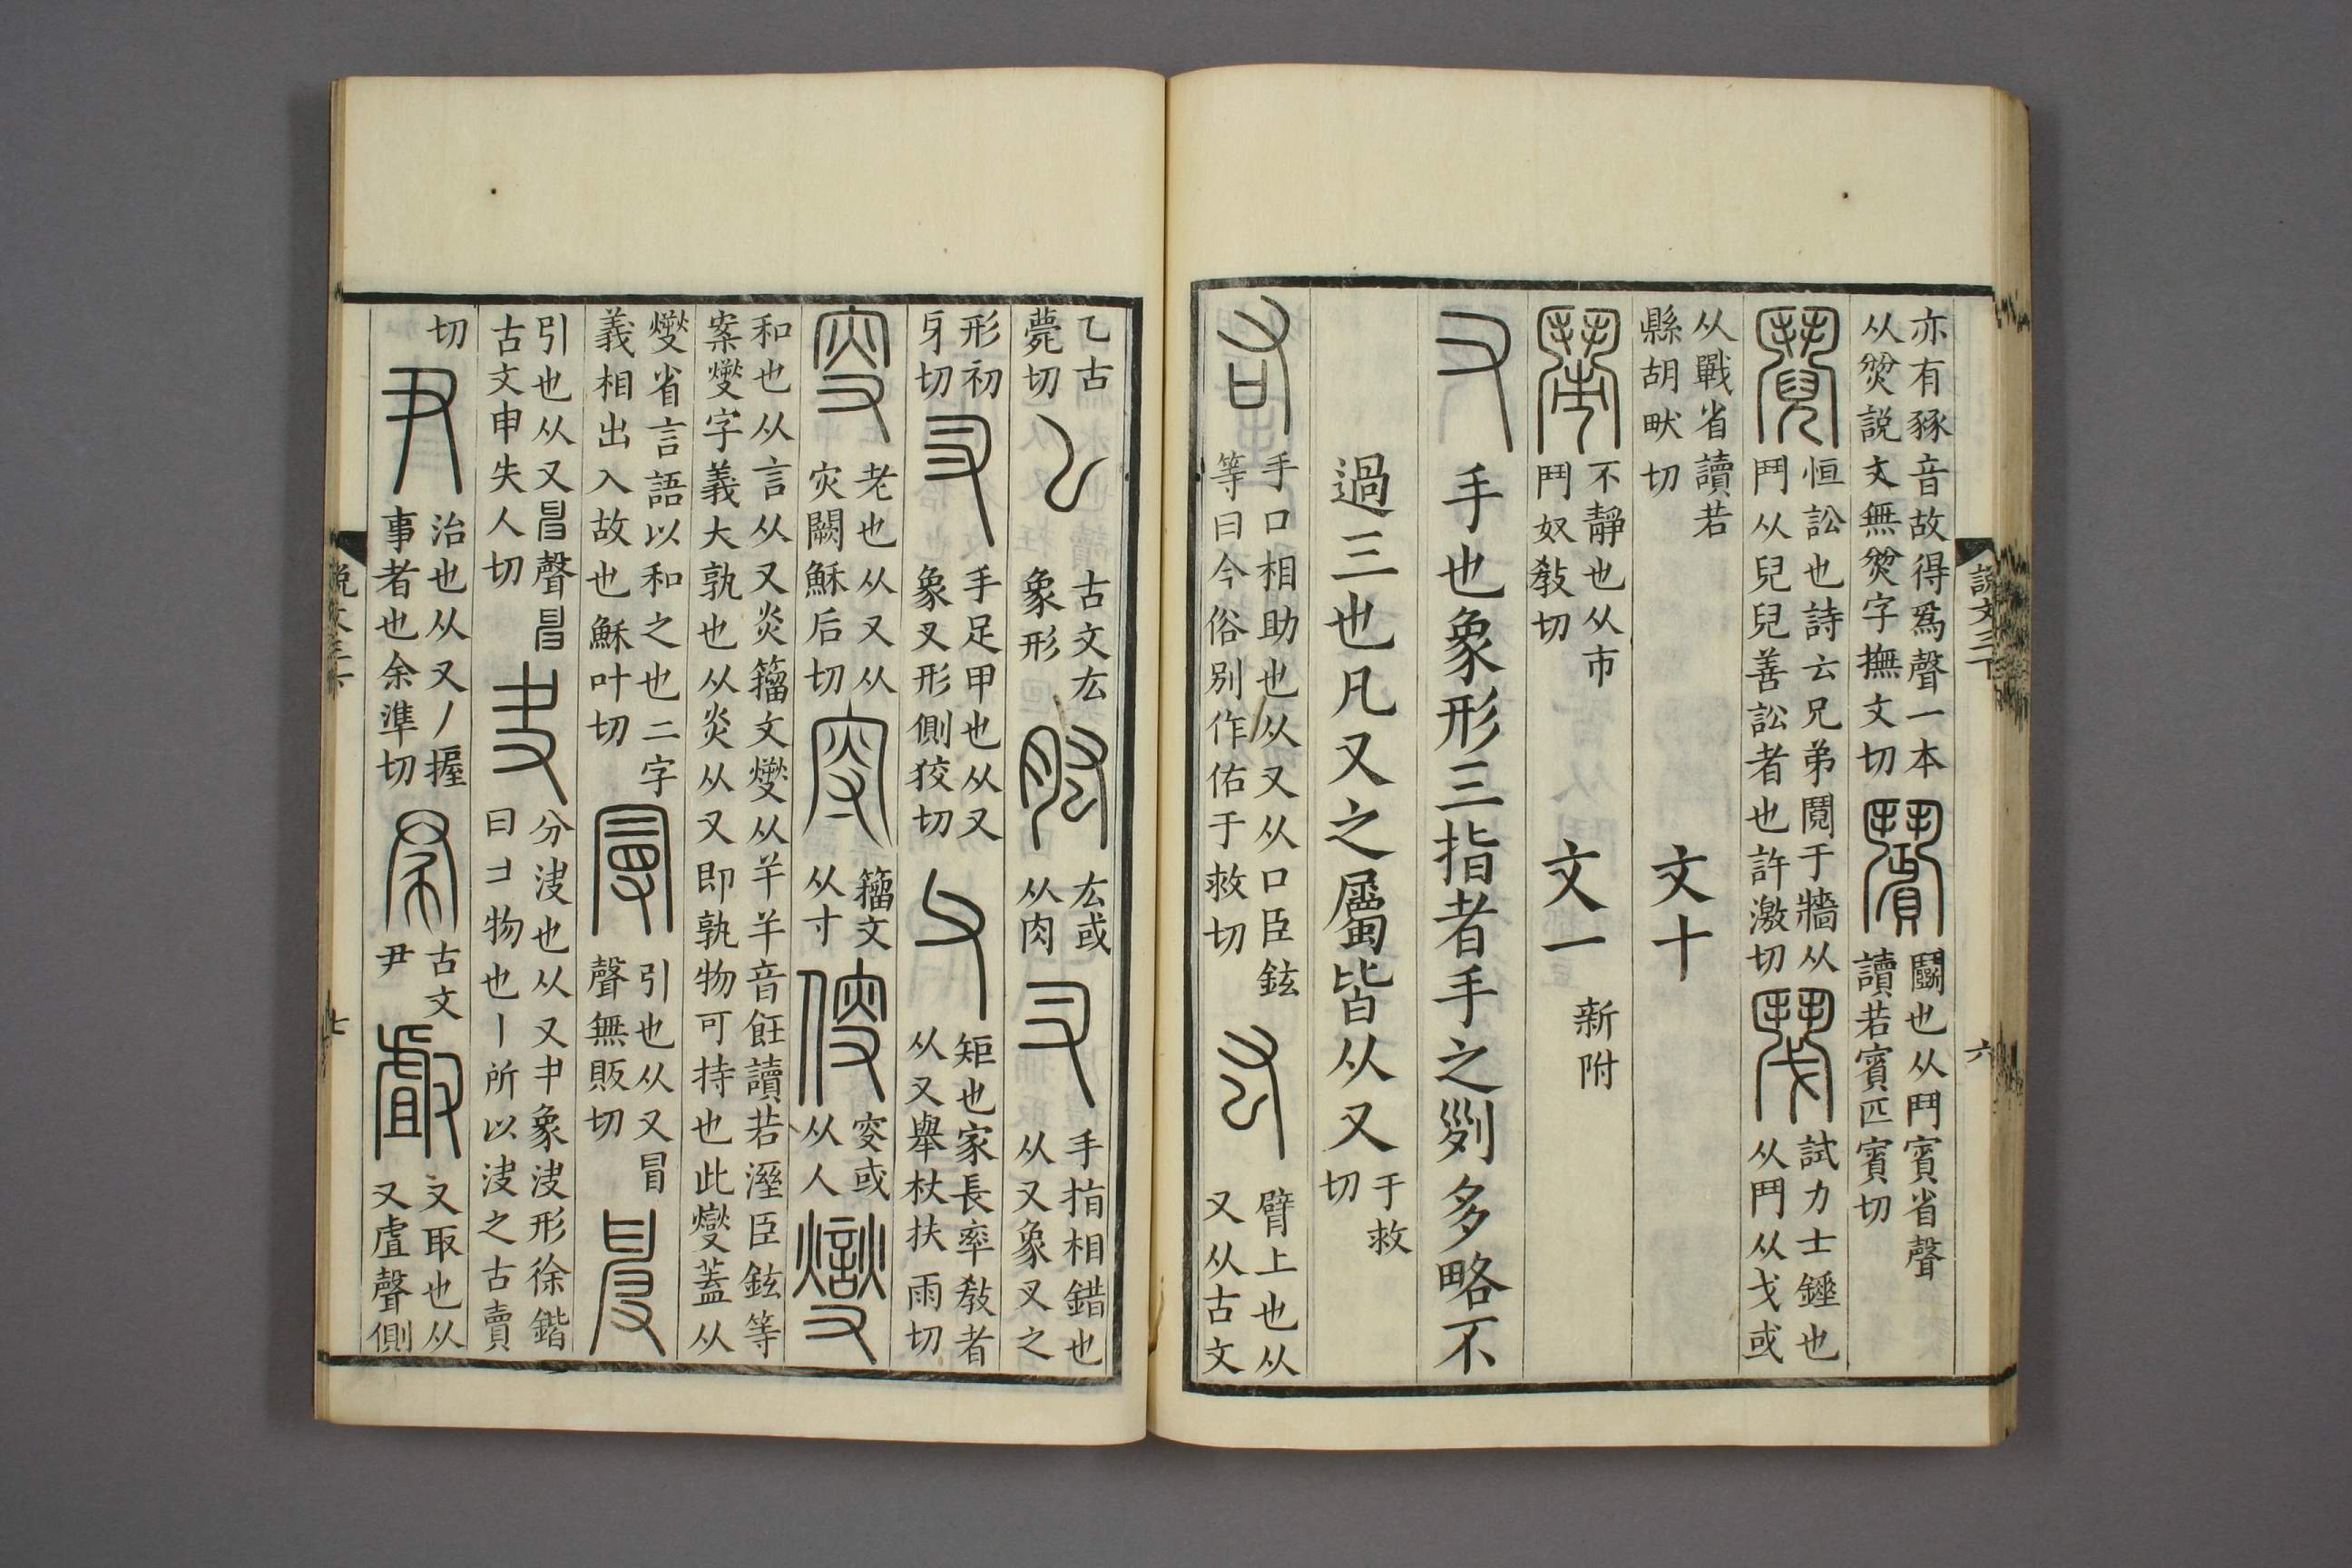 説文三下
六
亦有豩音故得爲聲一本
从㷊説文無㷊字撫文切
鬭也从鬥賓省聲
讀若賓匹賓切
鬩
恒訟也詩云兄弟鬩于牆从
鬥从兒兒善訟者也許激切
試力士錘也
从鬥从戈或
从戰省讀若
縣胡畎切
文十
鬧
不靜也从市
鬥奴敎切
文一
新附
又
手也象形三指者手之𠛱多略不
過三也凡又之屬皆从又
于救
切
右
手口相助也从又从口臣鉉
等曰今俗别作佑于救切
厷
臂上也从
又从古文
乙古
薨切
古文厷
象形
肱
厷或
从肉
叉
手指相錯也
从又象叉之
形初
牙切
㕚
手足甲也从又
象叉形側狡切
父
矩也家長率敎者
从又舉杖扶雨切
叜
老也从又从
灾闕穌后切
籀文
从寸
傁
叜或
从人
燮
和也从言从又炎籀文燮从𢆉𢆉音飪讀若溼臣鉉等
案燮字義大孰也从炎从又即孰物可持也此燮蓋从
燮省言語以和之也二字
義相出入故也穌叶切
曼
引也从又冒
聲無販切
引也从又𦥔聲𦥔
古文申失人切
夬
分決也从又象決形徐鍇
曰コ物也丨所以決之古賣
切
尹
治也从又丿握
事者也余準切
古文
尹
叉取也从
又虘聲側
説文三下
七